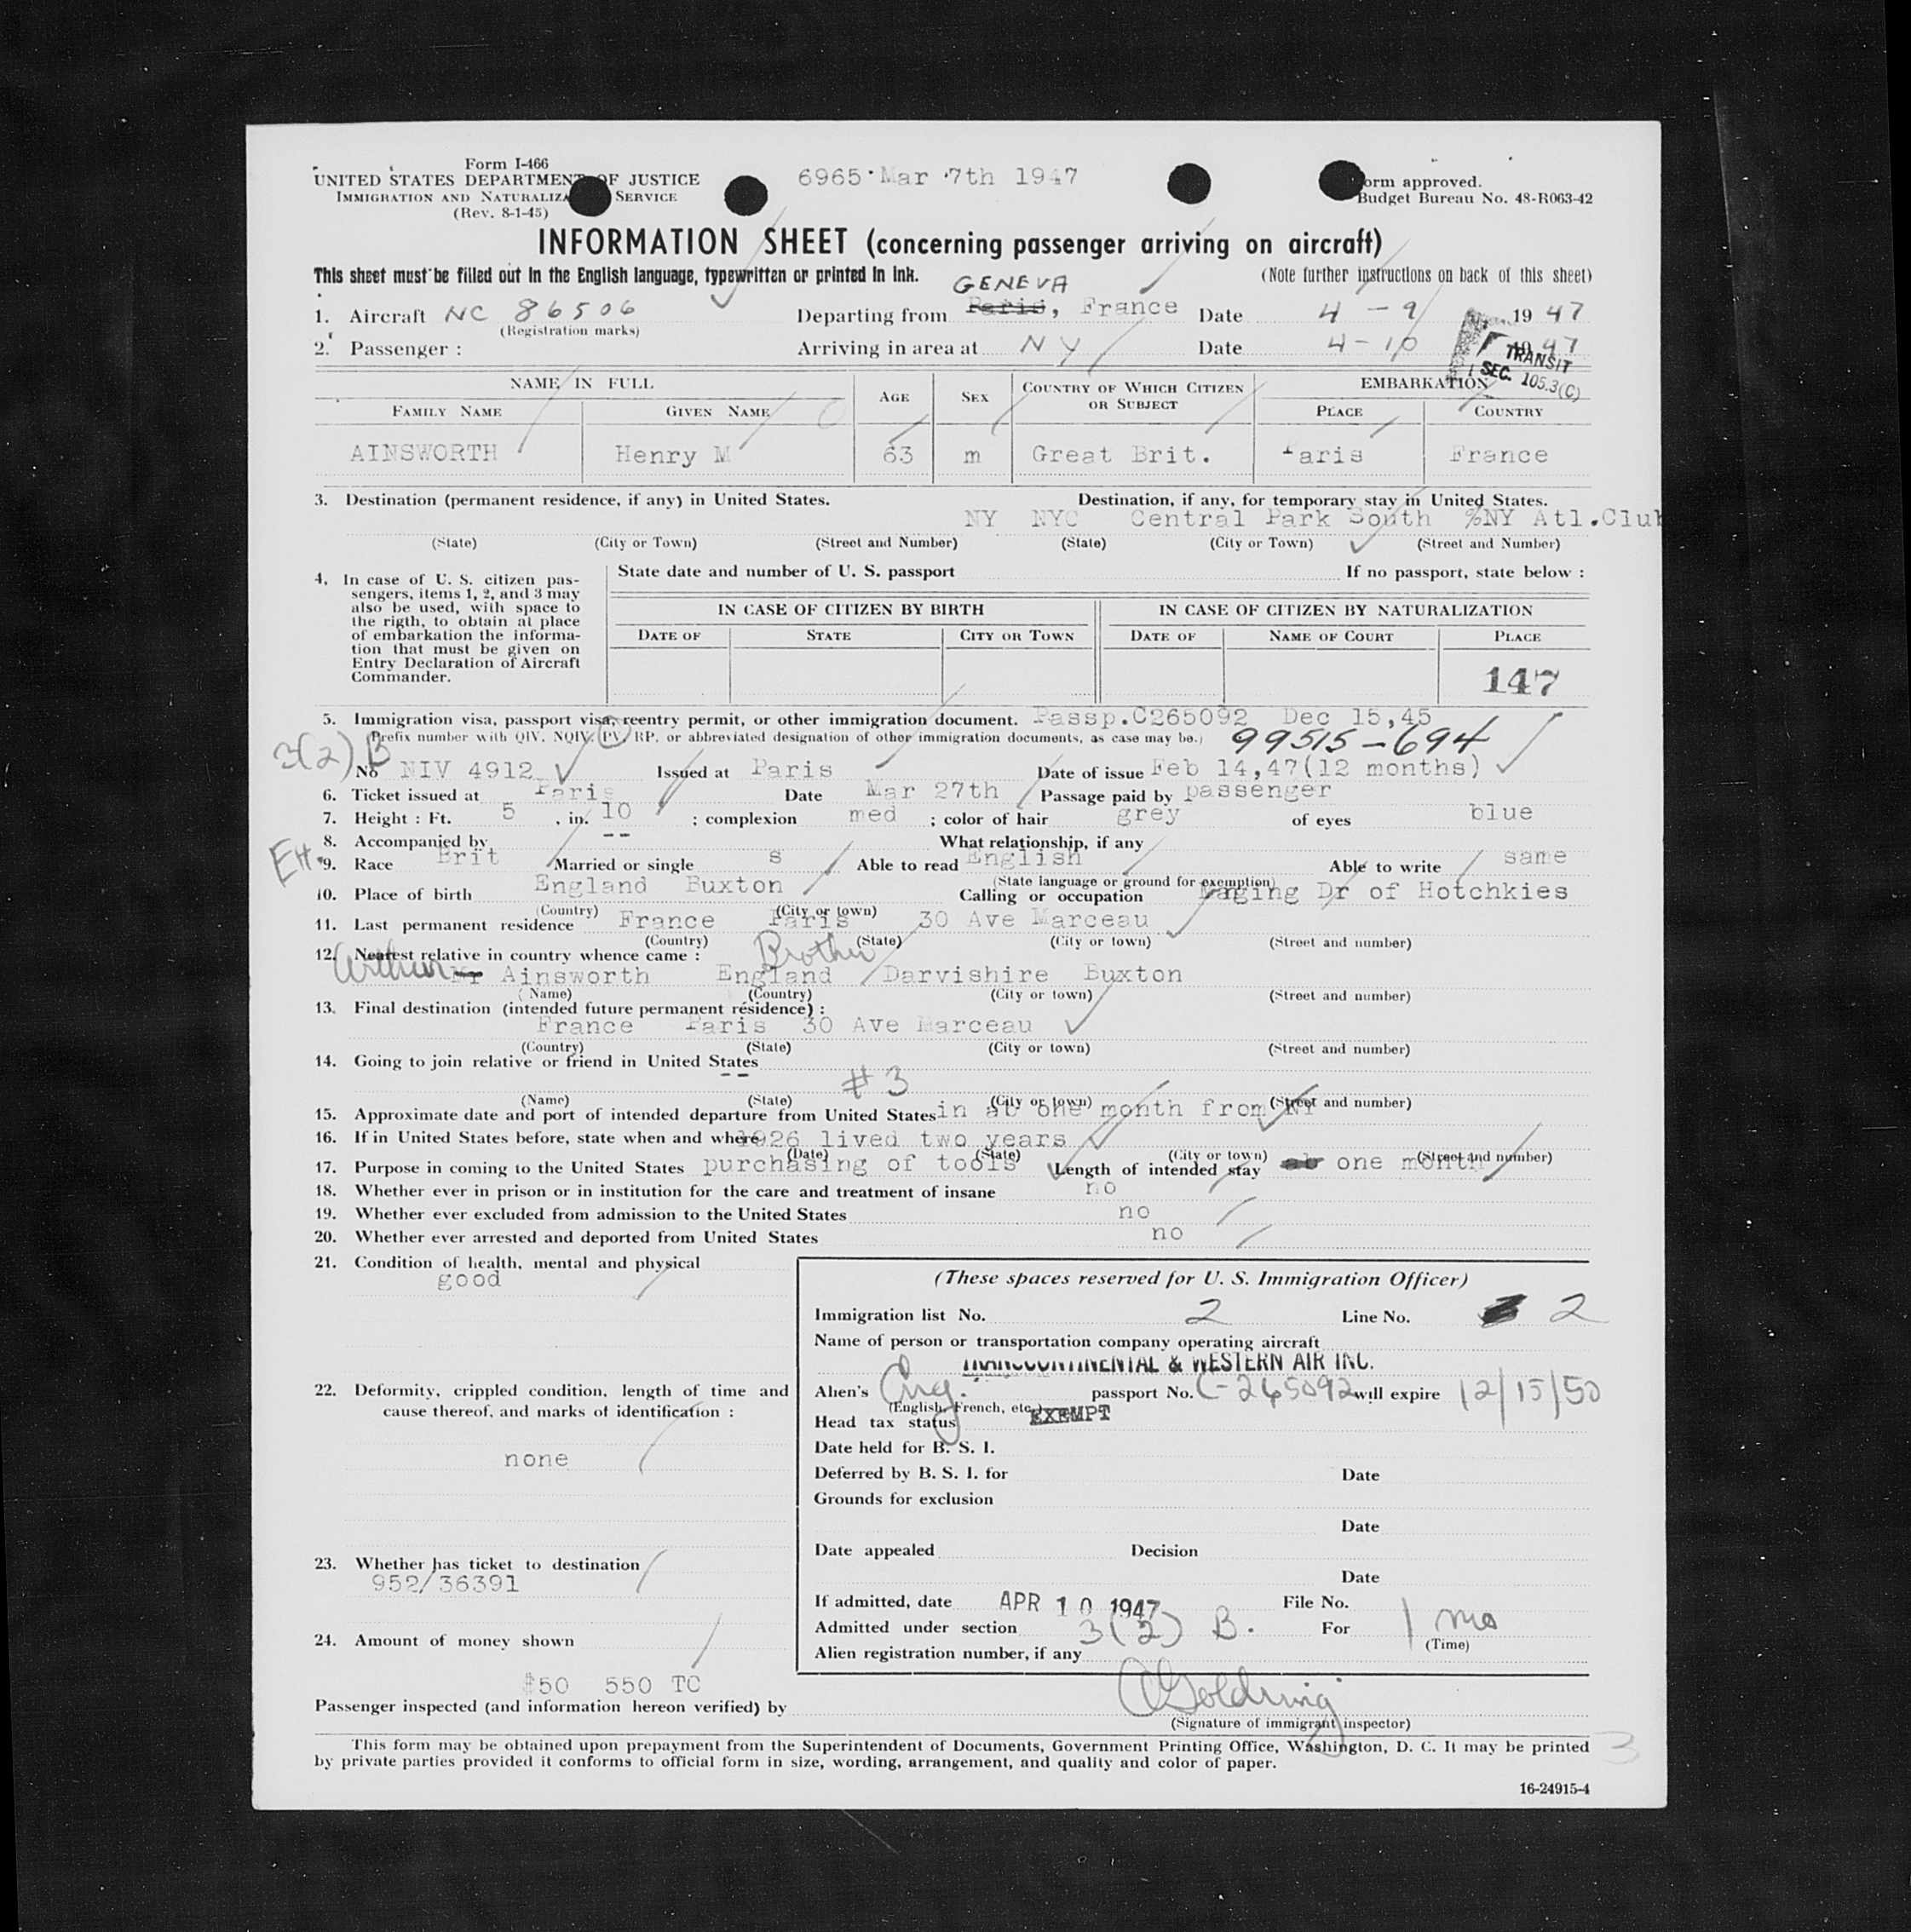 Form I-466
UNITED STATES DEPARTMENT OF JUSTICE
IMMIGRATION AND NATURALIZA SERVICE
(Rev. 8-1-45)
6965 Mar 7th 1947
orm approved.
Budget Bureau No. 48-R063-42
INFORMATION SHEET (concerning passenger arriving on aircraft)
This sheet must be filled out in the English language, typewritten or printed in ink.
(Note further instructions on back of this sheet)
GENEVA
1. Aircraft NC 86506 Departing from Paris, France Date 4-9 1947
(Registration marks)
2. Passenger : Arriving in area at NY Date 4-10 1947
TRANSIT
SEC. 105.3(C)
NAME IN FULL AGE SEX COUNTRY OF WHICH CITIZEN OR SUBJECT EMBARKATION
FAMILY NAME GIVEN NAME PLACE COUNTRY
AINSWORTH Henry M 63 m Great Brit. Paris France
3. Destination (permanent residence, if any) in United States. Destination, if any, for temporary stay in United States.
NY NYC Central Park South %NY Atl.Club
(State) (City or Town) (Street and Number) (State) (City or Town) (Street and Number)
4. In case of U. S. citizen pas-
sengers, items 1, 2, and 3 may
also be used, with space to
the rigth, to obtain at place
of embarkation the informa-
tion that must be given on
Entry Declaration of Aircraft
Commander.
State date and number of U. S. passport If no passport, state below :
IN CASE OF CITIZEN BY BIRTH IN CASE OF CITIZEN BY NATURALIZATION
DATE OF STATE CITY OR TOWN DATE OF NAME OF COURT PLACE
147
5. Immigration visa, passport visa, reentry permit, or other immigration document. Passp.C265092 Dec 15,45
Prefix number with QIV, NQIV, PV, RP, or abbreviated designation of other immigration documents, as case may be.) 99515-694
3(2) B
No NIV 4912 Issued at Paris Date of issue Feb 14,47(12 months)
6. Ticket issued at Paris Date Mar 27th Passage paid by passenger
7. Height : Ft. 5 , in. 10 ; complexion med ; color of hair grey of eyes blue
8. Accompanied by -- What relationship, if any
EH.
9. Race Brit Married or single s Able to read English Able to write same
(State language or ground for exemption)
10. Place of birth England Buxton Calling or occupation Maging Dr of Hotchkies
(Country) (City or town)
11. Last permanent residence France Paris 30 Ave Marceau
(Country) (State) (City or town) (Street and number)
12. Nearest relative in country whence came : Brother
Arthur Mr Ainsworth England Darvishire Buxton
(Name) (Country) (City or town) (Street and number)
13. Final destination (intended future permanent résidence) :
France Paris 30 Ave Marceau
(Country) (State) (City or town) (Street and number)
14. Going to join relative or friend in United States
-- #3
(Name) (State) (City or town) (Street and number)
15. Approximate date and port of intended departure from United States in ab one month from NY
16. If in United States before, state when and where 1926 lived two years
(Date) (State) (City or town) (Street and number)
17. Purpose in coming to the United States purchasing of tools Length of intended stay ab one month
18. Whether ever in prison or in institution for the care and treatment of insane no
19. Whether ever excluded from admission to the United States no
20. Whether ever arrested and deported from United States no
21. Condition of health, mental and physical
good
22. Deformity, crippled condition, length of time and
cause thereof, and marks of identification :
none
23. Whether has ticket to destination
952/36391
24. Amount of money shown
$50 550 TC
(These spaces reserved for U. S. Immigration Officer)
Immigration list No. 2 Line No. 2
Name of person or transportation company operating aircraft
TRANSCONTINENTAL & WESTERN AIR INC.
Alien's Eng. passport No. C-265092 will expire 12/15/50
(English, French, etc.)
Head tax status EXEMPT
Date held for B. S. I.
Deferred by B. S. I. for Date
Grounds for exclusion
Date
Date appealed Decision
Date
If admitted, date APR 10 1947 File No.
Admitted under section 3(2) B. For 1 mo
(Time)
Alien registration number, if any
Passenger inspected (and information hereon verified) by AGoldring
(Signature of immigrant inspector)
This form may be obtained upon prepayment from the Superintendent of Documents, Government Printing Office, Washington, D. C. It may be printed
by private parties provided it conforms to official form in size, wording, arrangement, and quality and color of paper.
3
16-24915-4